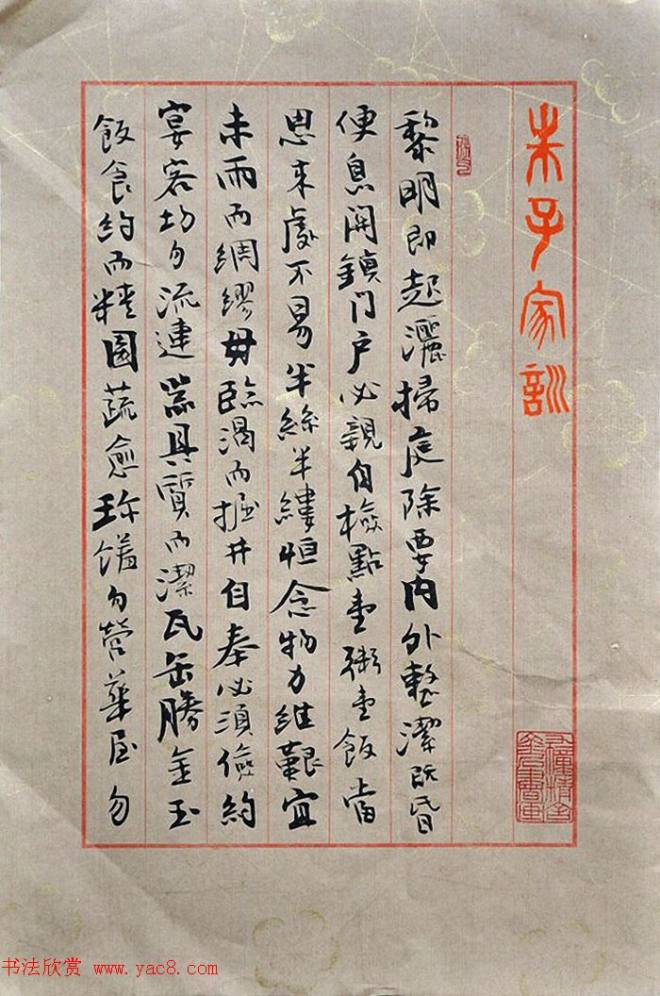 朱子家訓
黎明即起灑掃庭除要内外整潔既昏
便息関鎖门户必親自檢點壹粥壹飯當
思来處不易半絲半縷恒念物力維艱宜
未雨而綢繆毋臨渴而掘井自奉必須儉約
宴客切勿流連器具質而潔瓦缶勝金玉
飲食約而精園蔬愈珍饈勿營華屋勿
书法欣赏 www.yac8.com